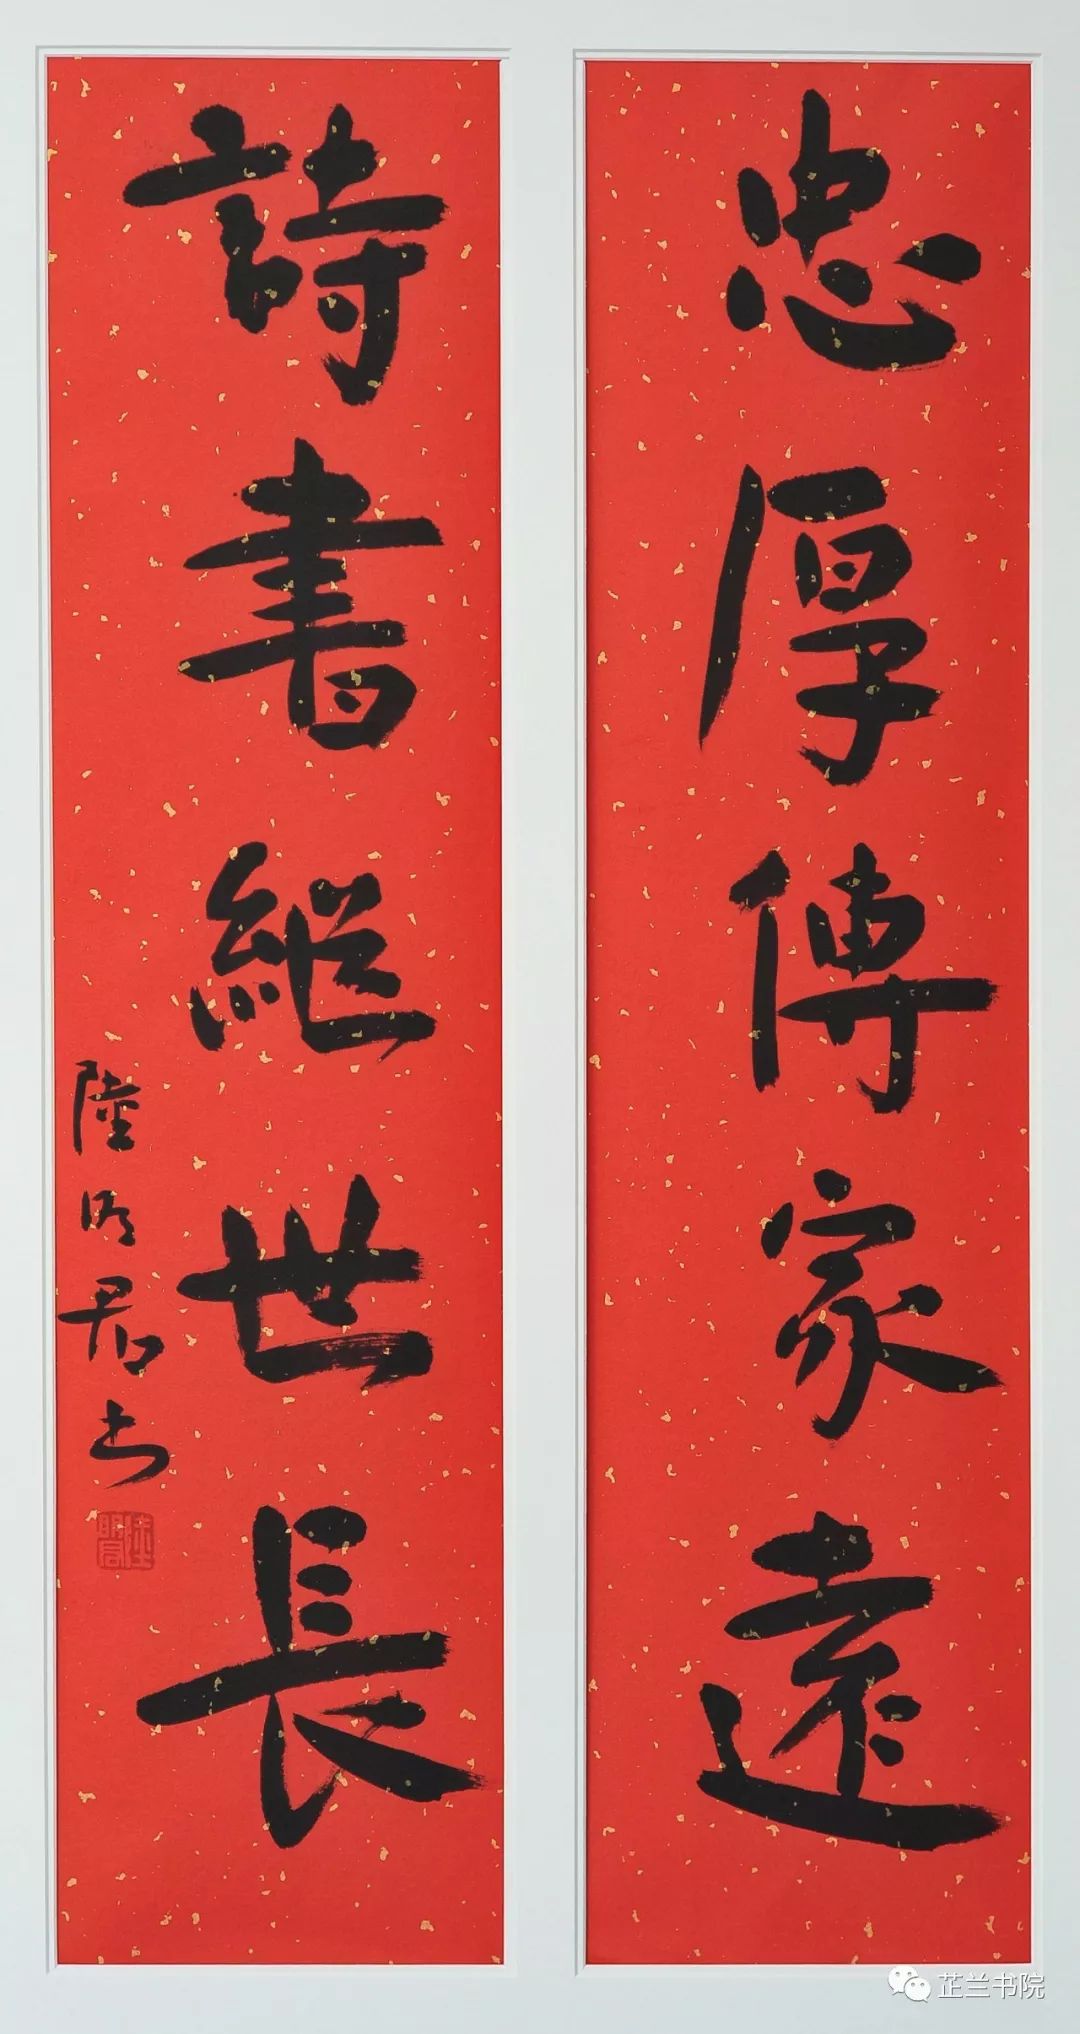 忠厚傳家遠
詩書継世長
陸明君书
陸明君
芷兰书院